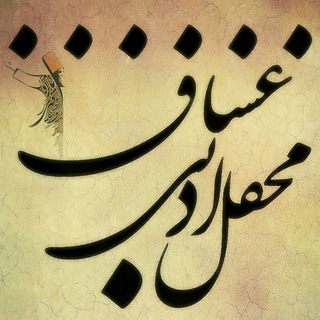 محفل ادبی
عشاق